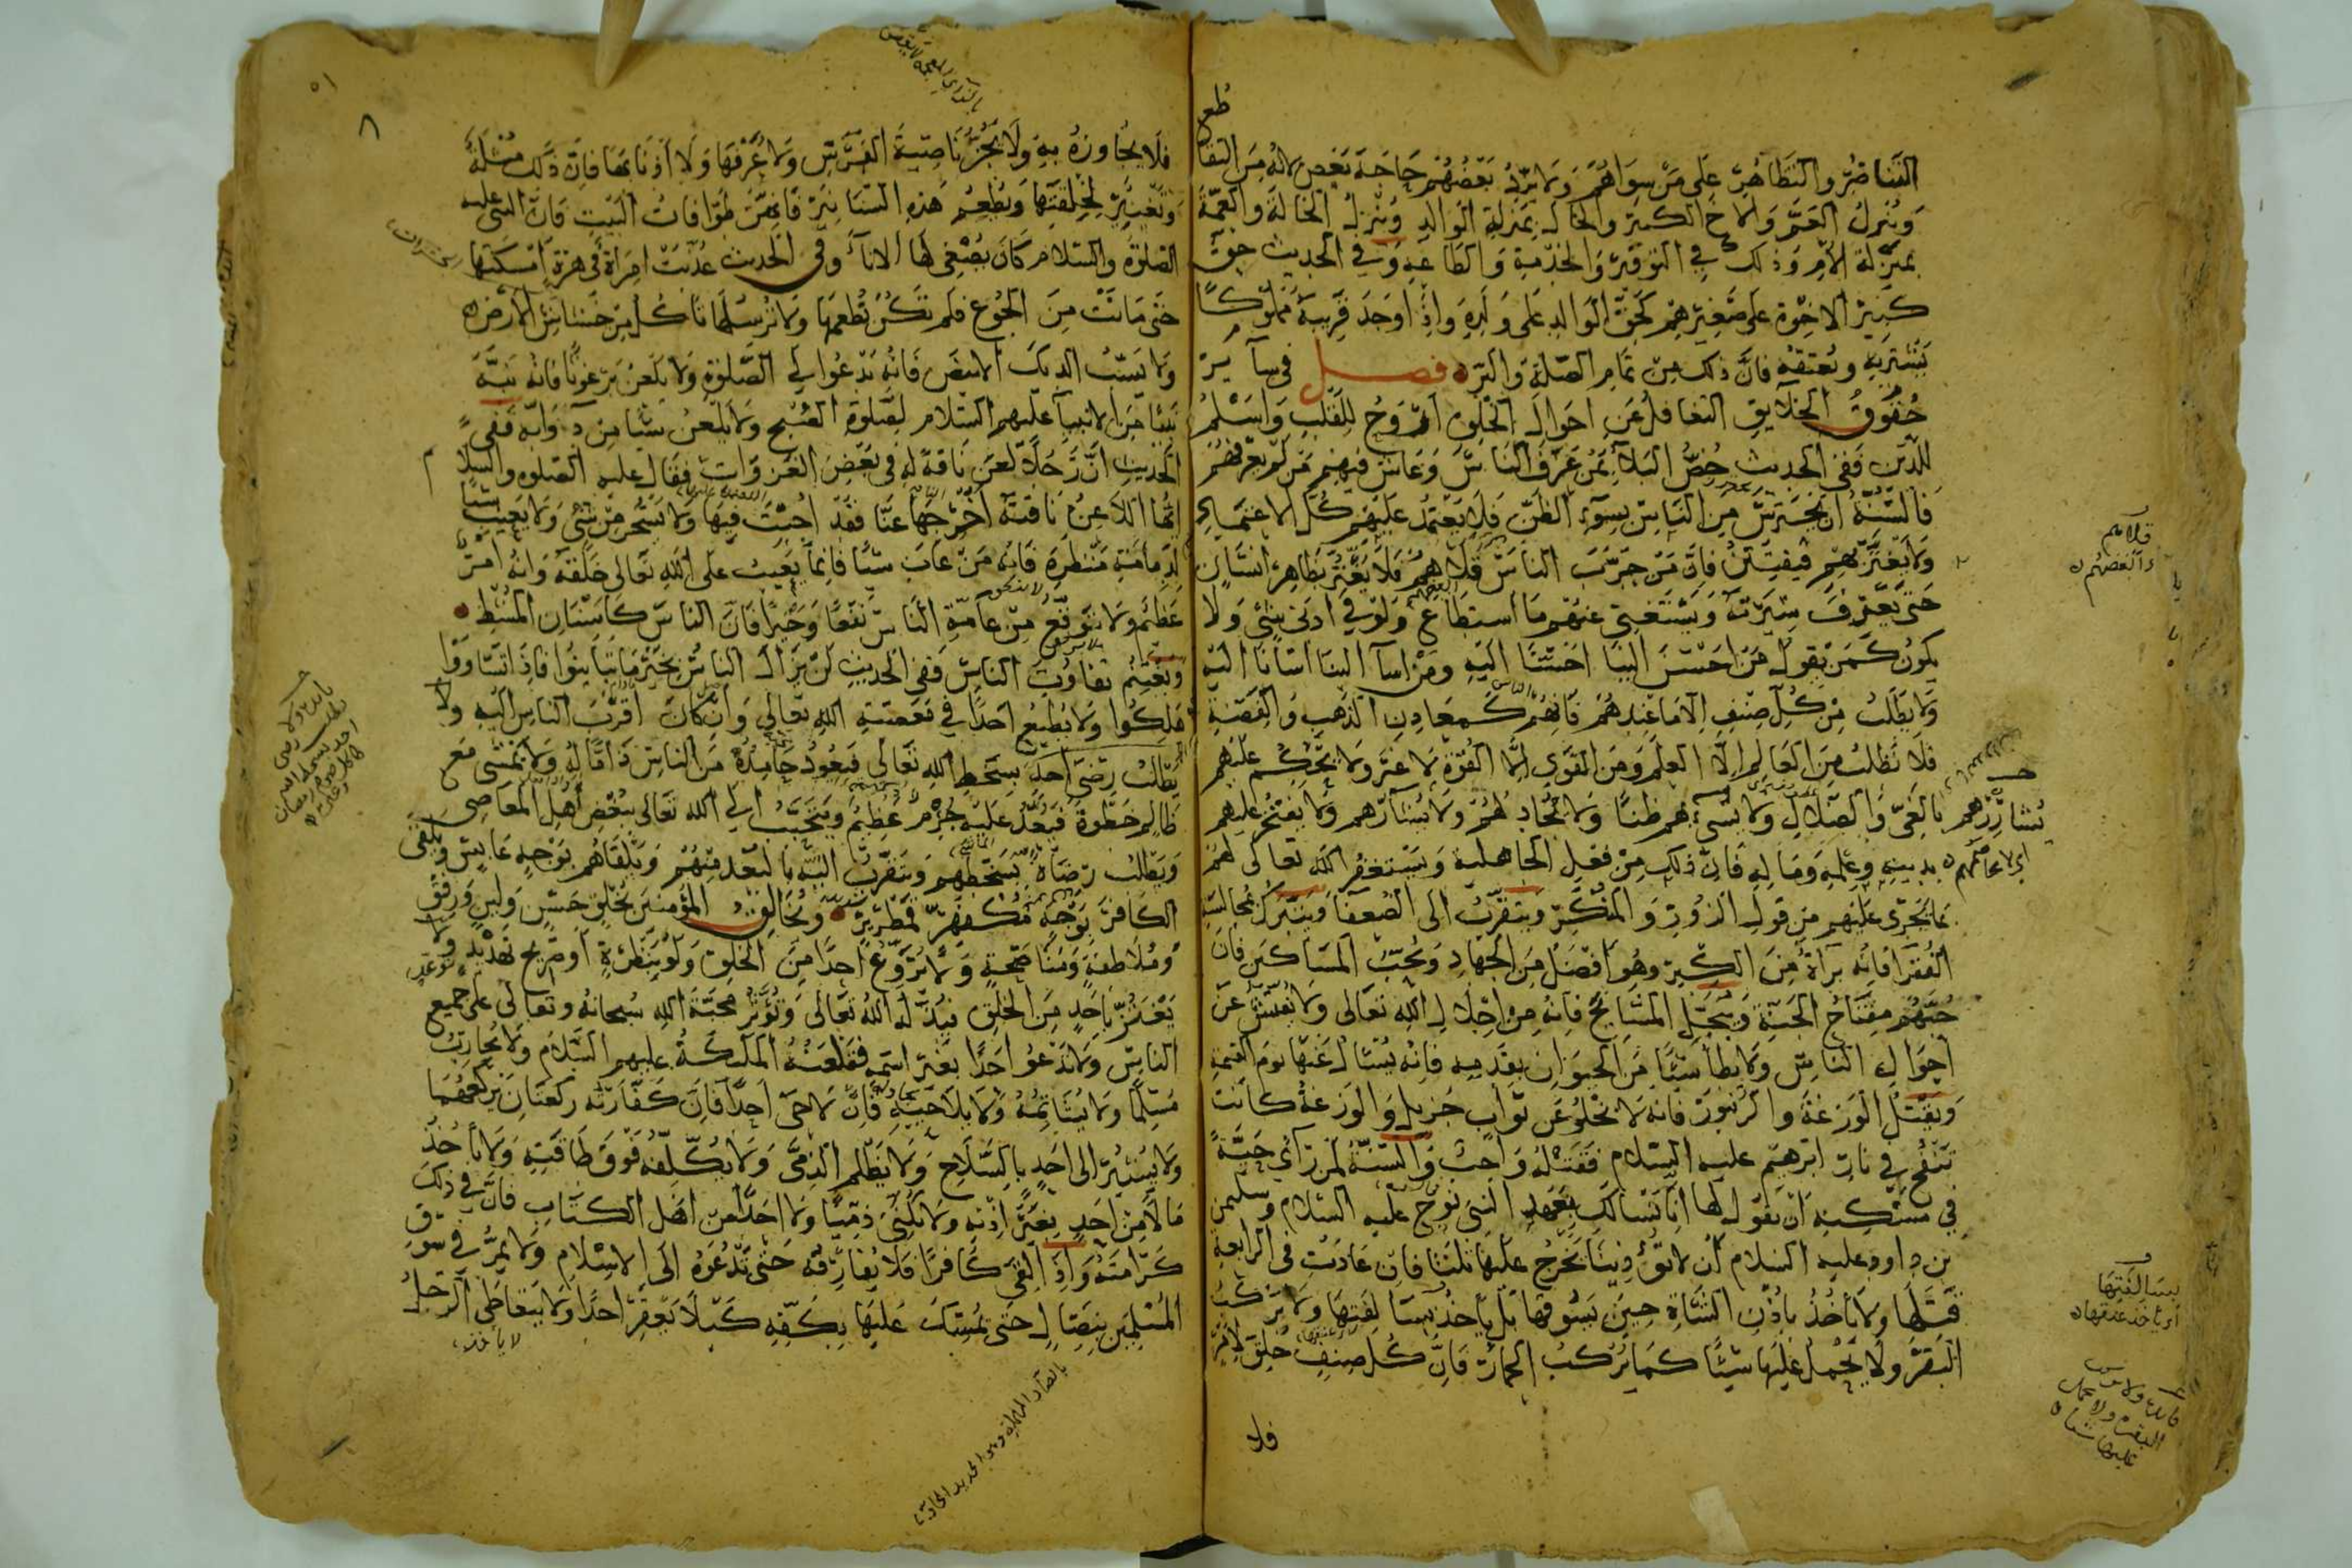 التناصر والتظاهر على من سواهم ولا يرد بعضهم حاجة بعض لانه من التقا
وينزل العم والاخ الكبير والخال بمنزلة الوالد وينزل الخالة والعمة
بمنزلة الام وذلك في التوقير والخدمة والطاعة وفي الحديث حق
كبير الاخوة على صغيرهم كحق الوالد على ولده واذا وجد قريبه مملوكا
يشتريه ويعتقه فان ذلك من تمام الصلة والبر فصل في سآير
حقوق الخلايق التغافل عن احوال الخلق اروح للقلب واسلم
للدين ففي الحديث خص البلآ بمن عرف الناس وعاش فيهم من لم يعرفهم
فالسنة ان يحترس من الناس بسوء الظن فلا يعتمد عليهم كل الاعتماد
ولا يغتر بهم فيفتتن فان من جرب الناس قلاهم فلا يغتر بظاهر انسان
حتى يعترف سيرته ويستغني عنهم ما استطاع ولو في ادنى شئ ولا
يكون كمن يقول من احسن الينا احسنا اليه ومن اسآ الينا اسأنا اليه
ولا يطلب من كل صنف الا ما عندهم فانهم كمعادن الذهب والفضة
فلا تطلب من العالم الا العلم ومن القوي الا القوة لا غير ولا يتحكم عليهم
بالغي والضلال ولا يسيء بهم ظنا ولا يجادلهم ولا يسارهم ولا يفتخر عليهم
بدينه وعلمه وماله فان ذلك من فعل الجاهلية ويستغفر الله تعالى لهم
بما يجري عليهم من قول الزور والمنكر ويتقرب الى الضعفا ويتبرك بمجالسة
الفقرا فانه برآة من الكبر وهو افضل من الجهاد ويحب المساكين فان
حبهم مفتاح الجنة ويبجل المشايخ فانه من اجلال الله تعالى ولا يفتش عن
احوال الناس ولا يطأ شيئا من الحيوان بقدميه فانه يسئال عنها يوم القيمة
ويقتل الوزغة والزنبور فانه لا يخلو عن ثواب جزيل والوزغة كانت
تنفخ في نار ابرهيم عليه السلام فقتله واجب والسنة لمن رآى حية
في مسكنه ان يقول لها انا نسالك بعهد النبي نوح عليه السلام وسليمن
بن داود عليه السلام ان لا تؤذينا يخرج عليها ثلثا فان عادت في الرابعة
قتلها ولا ياخذ باذن الشاة حين يسوقها بل ياخذ بسالفتها ولا يركب
البقر ولا يحمل عليها شيئا كما يركب الحمار فان كل صنف خلق لامر
فلا
قلاهم
اي ابغضهم
بسالفتها
اي ياخذ عنقها
فلا يجاوزه به ولا يجز ناصية الفرس ولا عرفها ولا اذنابها فان ذلك مثلة
وتغيير لخلقتها ويطعم هذه السنانير فانهن طوافات البيت فان النبي عليه
الصلوة والسلام كان يصغي لها الانآ وفي الحديث عذبت امرأة في هرة امسكتها
حتى ماتت من الجوع فلم تكن تطعمها ولا ترسلها تاكل من خشاش الارض
ولا يسب الديك الابيض فانه يدعوا الى الصلوة ولا يلعن برغوثا فانه نبه
نبيا من الانبيآ عليهم السلام لصلوة الصبح ولا يلعن شيئا من دوابه ففي
الحديث ان رجلا لعن ناقة له في بعض الغزوات فقال عليه الصلوة والسلام
ايها اللاعن ناقته اخرجها عنا فقد اجبت فيها ولا يسخر من شئ ولا يعيب شيئا
لدمامة منظره فانه من عاب شيئا فانما يعيب على الله تعالى خلقه وانه امر
عظيم ولا يتوقع من عامة الناس نفعا وخيرا فان الناس كاسنان المشط
ويغتنم تفاوت الناس ففي الحديث لن يزال الناس بخير ما تباينوا فاذا تساووا
هلكوا ولا يطيع احدا في معصية الله تعالى وان كان اقرب الناس اليه ولا
يطلب رضى احد بسخط الله تعالى فيعود حامده من الناس ذاما له ولا يمشى مع
ظالم خطوة فيعد عليه جرم عظيم ويتحبب الى الله تعالى ببغض اهل المعاصي
ويطلب رضاه بسخطهم ويتقرب اليه بالبعد منهم ويلقاهم بوجه عابس ويلقى
الكافر بوجه مكفهر قمطرير ويخالق المؤمنين بخلق حسن ولين ورفق
وملاطفة ومناصحة ولا يروع احدا من الخلق ولو بنظرة او صريح تهديد ولا
يعتز باحد من الخلق فيذله الله تعالى ويؤثر محبة الله سبحانه وتعالى على جميع
الناس ولا يدعو احدا بغير اسمه فتلعنه الملئكة عليهم السلام ولا يحارب
مسلما ولا يشاتمه ولا يلاحيه فان لاحى احدا فان كفارته ركعتان يركعهما
ولا يشير الى احد بالسلاح ولا يظلم الذمى ولا يكلفه فوق طاقته ولا ياخذ
مالا من احد بغير اذنه ولا يكنى ذميا ولا احدا من اهل الكتاب فان في ذلك
كرامته واذا لقى كافرا فلا يفارقه حتى يدعوه الى الاسلام ولا يمر في سوق
المسلمين بنصال حتى يمسك عليها بكفه كيلا يعقر احدا ولا يتعاطى الرجل
لا ياخذ
بالصاد المهملة وهو الحديد الحاد